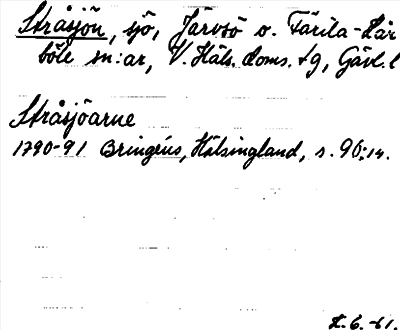 Stråsjön, sjö, Järvsö o. Färila-Kår
böle sn:ar, V. Häls. doms. tg, Gävl. l
Stråsjöarne
1790-91 Bringéus, Hälsingland, s. 90;14.
L. 6. -61.